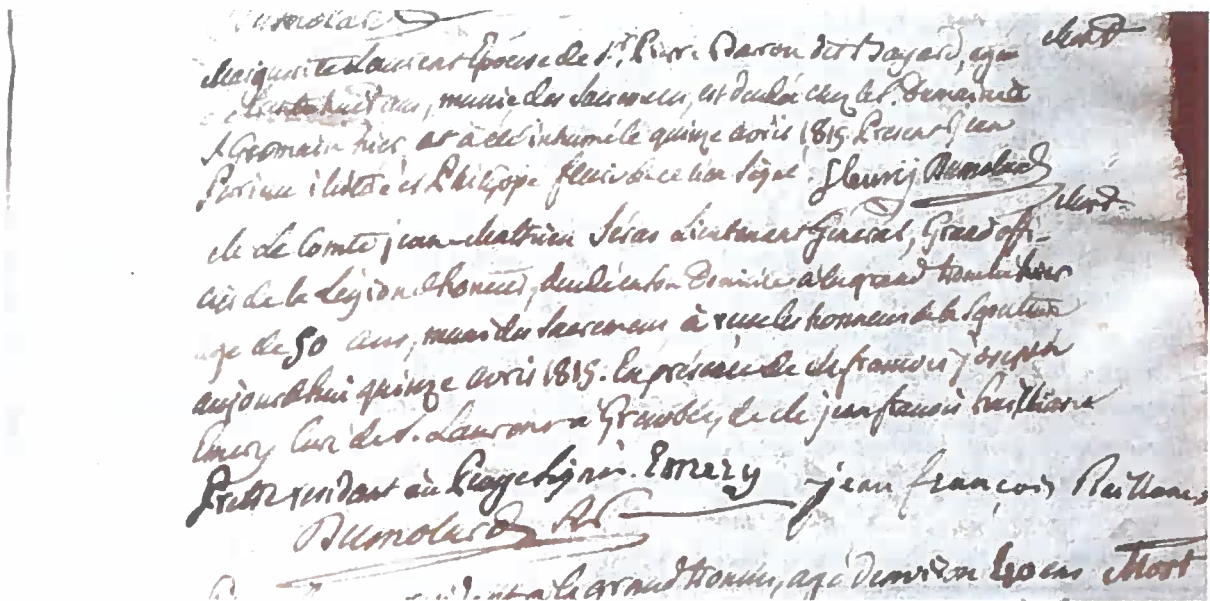 Dumolard
Marguerite Laurent Epouse de Sr. Pierre Baron dit Bayard, agé Mort
huit ans, munie des Sacremens, est décédée chez le S. Dominique
St Germain hier, et à été inhumé le quinze avril 1815. Present jean
illitéré et Philippe fleuri de ce lieu Signé. fleurij Dumolard
Mr Le Comte jean-Mathieu Séras Lieutenant Général, Grand offi- Mort
cier de la Légion d'honeur, décédé en son Domicile à la grand hier
age de 50 ans, muni des Sacremens à reçu les honneurs de la Sépulture
aujourdhui quinze avril 1815. En présence de Mr francois joseph
Emery Curé de St. Laurent à Grenoble, de Mr jean francois
Pretre residant au Péage Signés. Emery jean françois
Dumolard
à la grand, agé d'environ 40 ans Mort